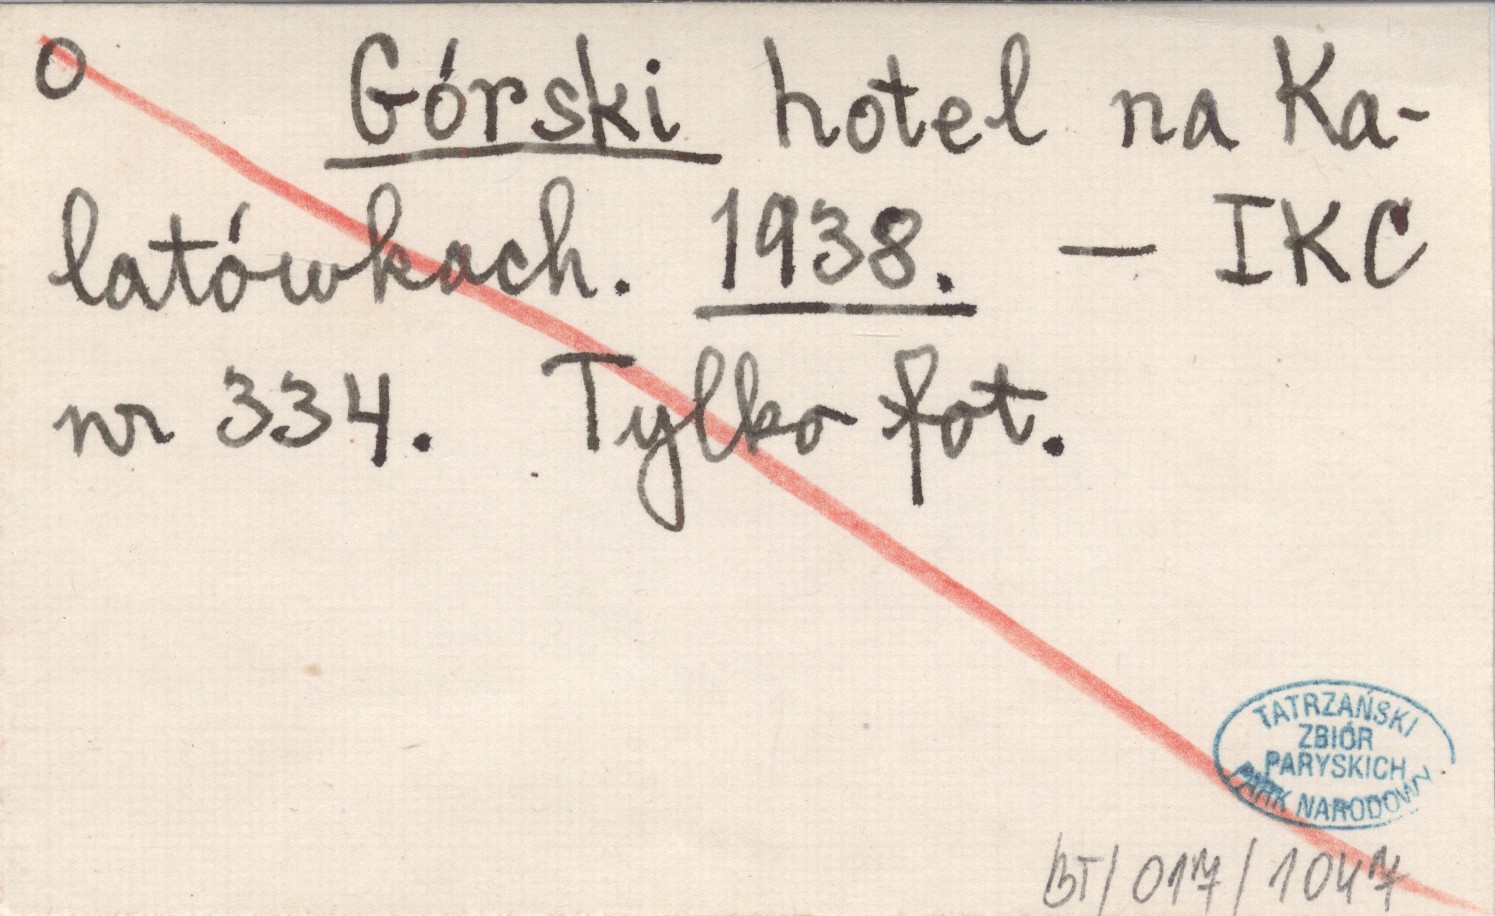 O Górski hotel na Ka-
latówkach. 1938. — IKC
nr 334. Tylko fot.
TATRZAŃSKI
ZBIÓR
PARYSKICH
PARK NARODOWY
BT/017/1047